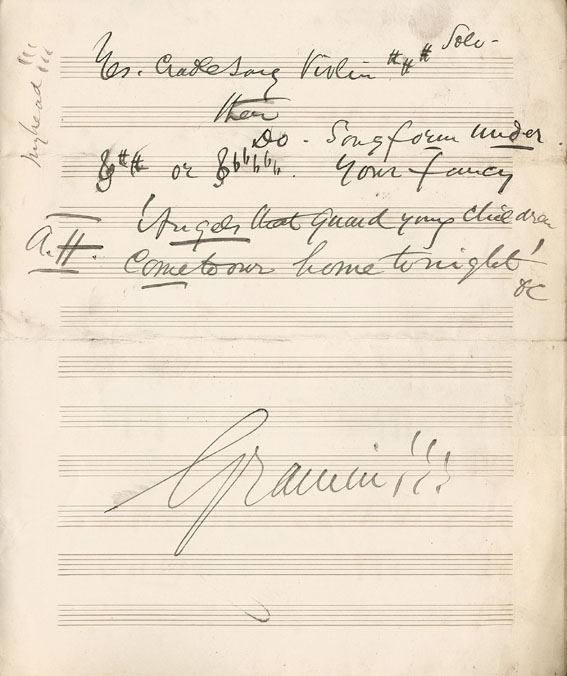 Yes. Cradle Song Violin ### Solo -
then
Do - Song form under
## or ♭♭♭♭♭. Your fancy
'Angels that guard young children
A.H. Come to our home tonight'
&c
my head !!!
!!!